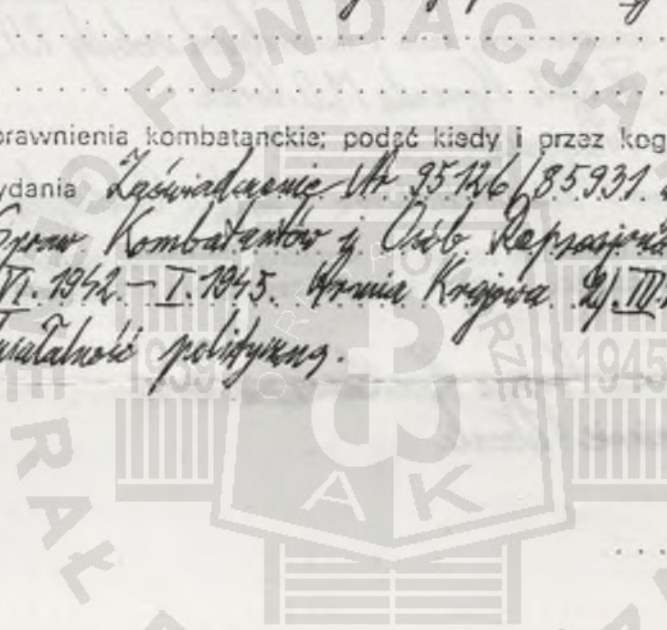 prawnienia kombatanckie; podać kiedy i przez kog
ydania Zaświadczenie Nr 95126/85931
Spraw Kombatantów i Osób Represjonow
VI. 1942. – I. 1945. Armia Krajowa 2/. III
działalność polityczną.
FUNDACJA
GENERAŁ
1939
1945
POMORZE
AK